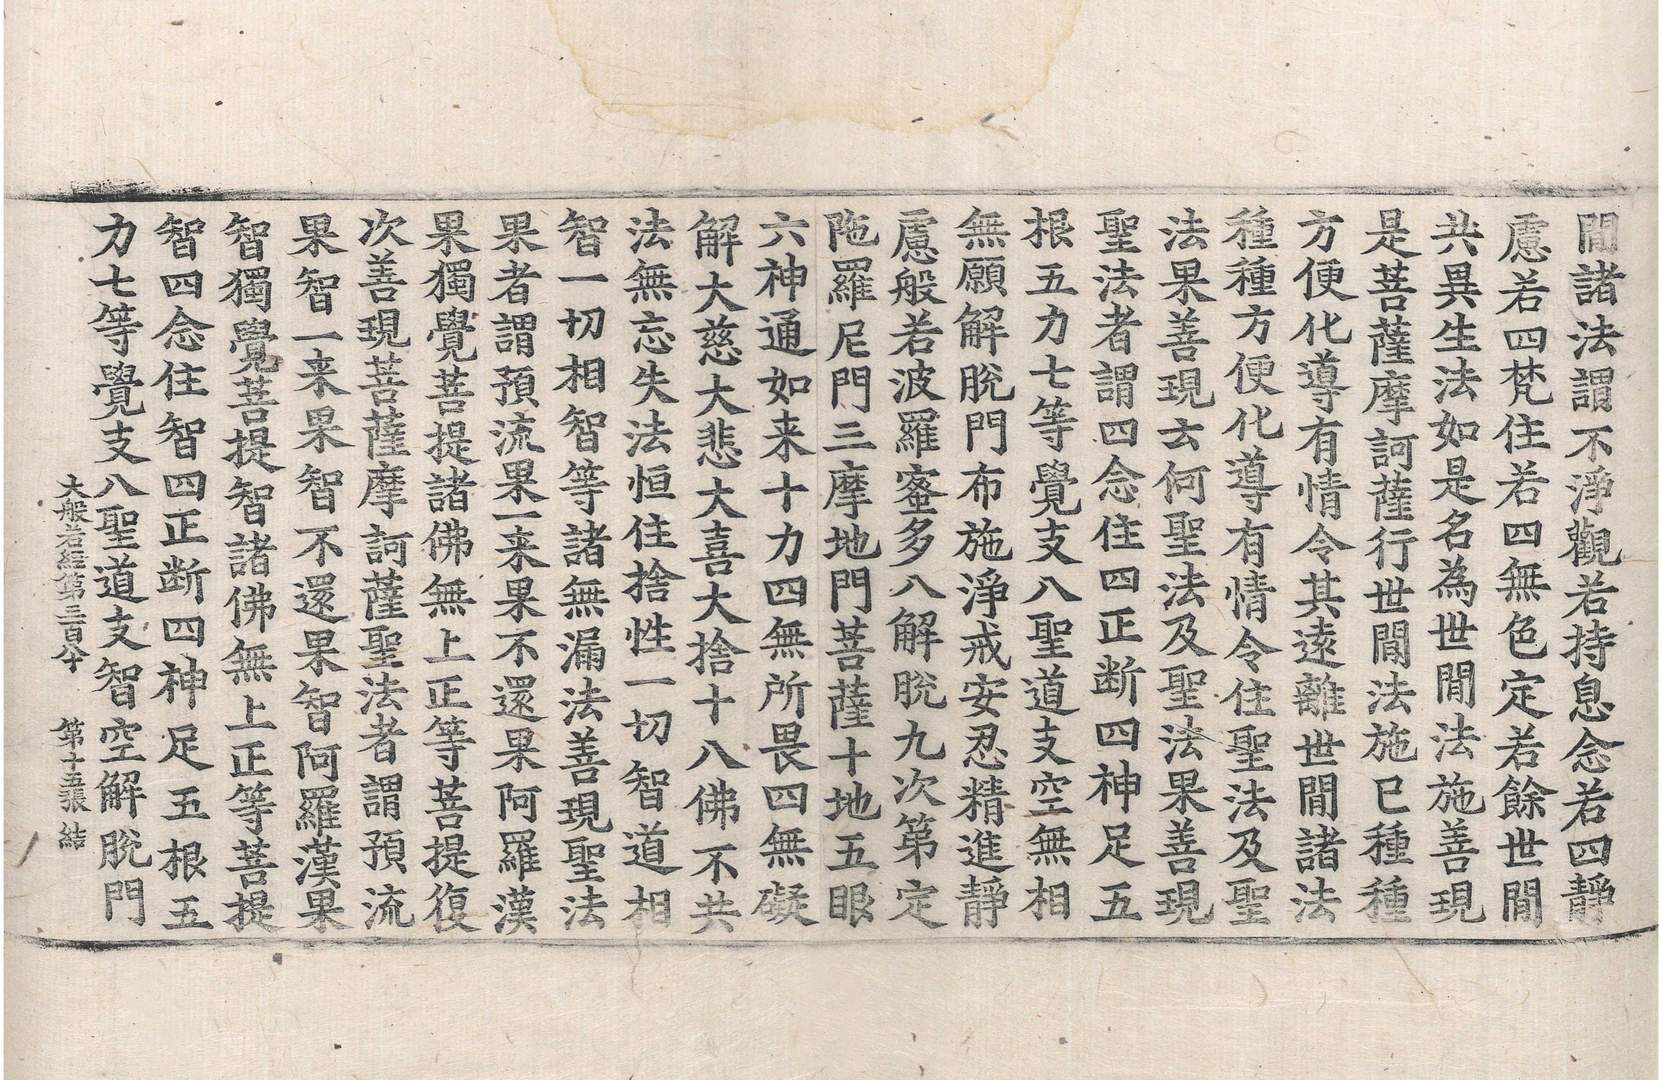 間諸法謂不淨觀若持息念若四靜
慮若四梵住若四無色定若餘世間
共異生法如是名為世間法施善現
是菩薩摩訶薩行世間法施已種種
方便化導有情令其遠離世間諸法
種種方便化導有情令住聖法及聖
法果善現云何聖法及聖法果善現
聖法者謂四念住四正断四神足五
根五力七等覺支八聖道支空無相
無願解脫門布施淨戒安忍精進靜
慮般若波羅蜜多八解脫九次第定
陁羅尼門三摩地門菩薩十地五眼
六神通如来十力四無所畏四無礙
解大慈大悲大喜大捨十八佛不共
法無忘失法恒住捨性一切智道相
智一切相智等諸無漏法善現聖法
果者謂預流果一来果不還果阿羅漢
果獨覺菩提諸佛無上正等菩提復
次善現菩薩摩訶薩聖法者謂預流
果智一来果智不還果智阿羅漢果
智獨覺菩提智諸佛無上正等菩提
智四念住智四正断四神足五根五
力七等覺支八聖道支智空解脫門
大般若經第三百八十 第十五張 結